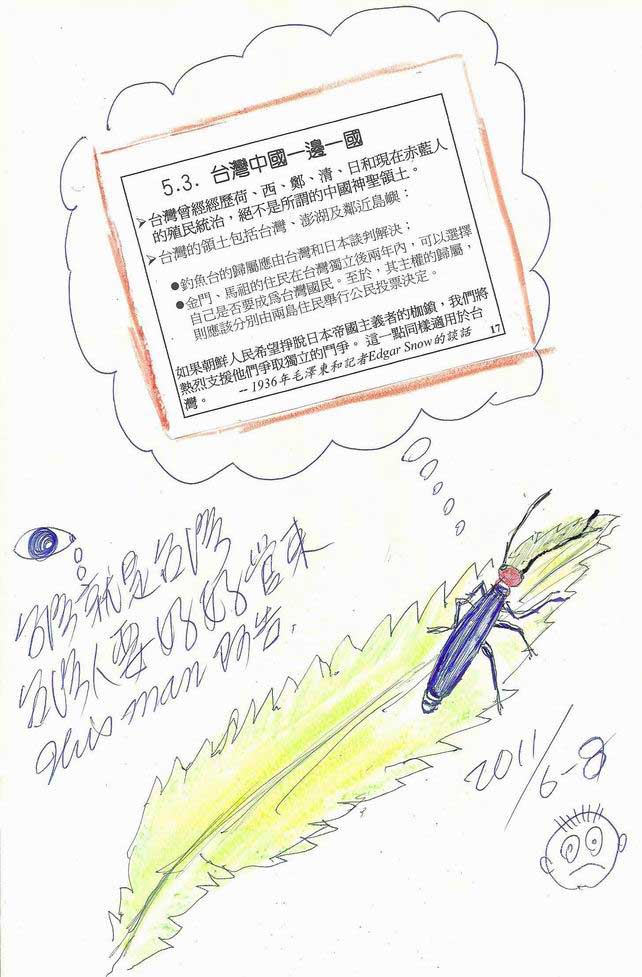 5.3. 台灣中國一邊一國
➢台灣曾經經歷荷、西、鄭、清、日和現在赤藍人
的殖民統治，絕不是所謂的中國神聖領土。
➢台灣的領土包括台灣、澎湖及鄰近島嶼：
●釣魚台的歸屬應由台灣和日本談判解決；
●金門、馬祖的住民在台灣獨立後兩年內，可以選擇
自己是否要成為台灣國民。至於，其主權的歸屬，
則應該分別由兩島住民舉行公民投票決定。
如果朝鮮人民希望掙脫日本帝國主義者的枷鎖，我們將
熱烈支援他們爭取獨立的鬥爭。這一點同樣適用於台
灣。 -- 1936年毛澤東和記者Edgar Snow的談話
17
台灣就是台灣
台灣人要好好
this man
2011/6-8